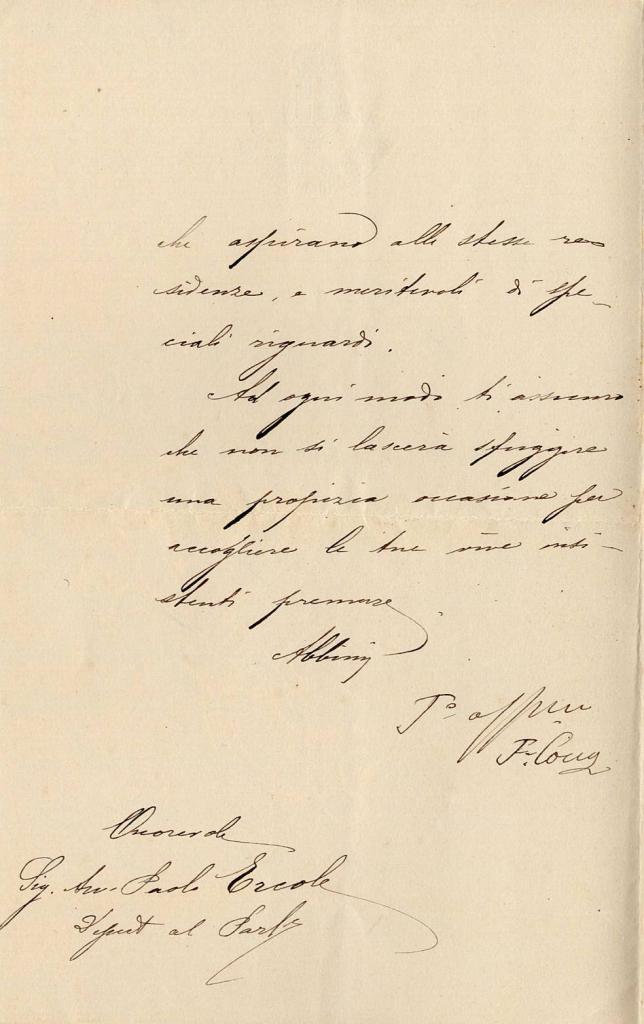 che aspirano alle stesse re-
sidenze, e meritevoli di spe-
ciali riguardi.
Ad ogni modo ti assicuro
che non si lascerà sfuggire
una propizia occasione per
accogliere le tue vive insi-
stenti premure
Abbimi
Tº affmo
Onorevole
Sig. Avv. Paolo Ercole
Deput al Parlto